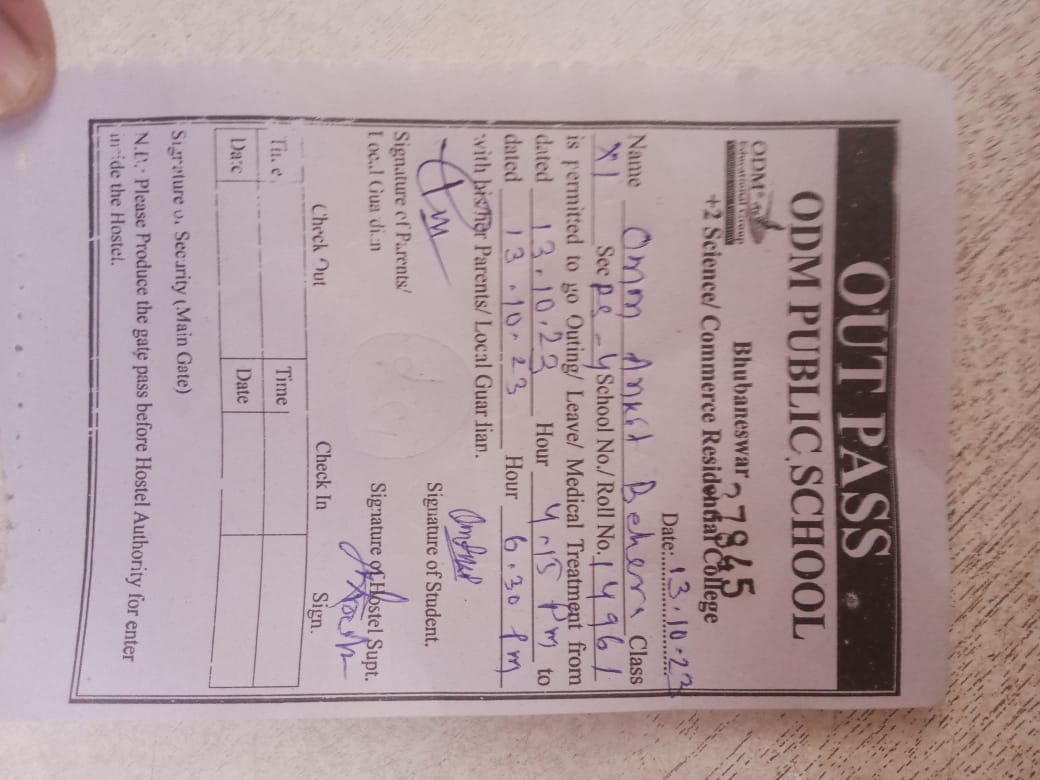 OUT PASS
ODM PUBLIC SCHOOL
ODM
Educational Group
Bhubaneswar 27845
+2 Science/ Commerce Residential College
Date:..13.10.23
Name Omm Ankit Behera Class
XI Sec PE-Y School No./ Roll No. 14961
is permitted to go Outing/ Leave/ Medical Treatment from
dated 13.10.23 Hour 4.15 Pm to
dated 13.10.23 Hour 6.30 Pm
with his/her Parents/ Local Guardian.
Signature of Parents/
Local Guardian
Signature of Student.
Signature of Hostel Supt.
Check Out Check In Sign.
Time Time
Date Date
Signature of Security (Main Gate)
N.B.: Please Produce the gate pass before Hostel Authority for enter
inside the Hostel.